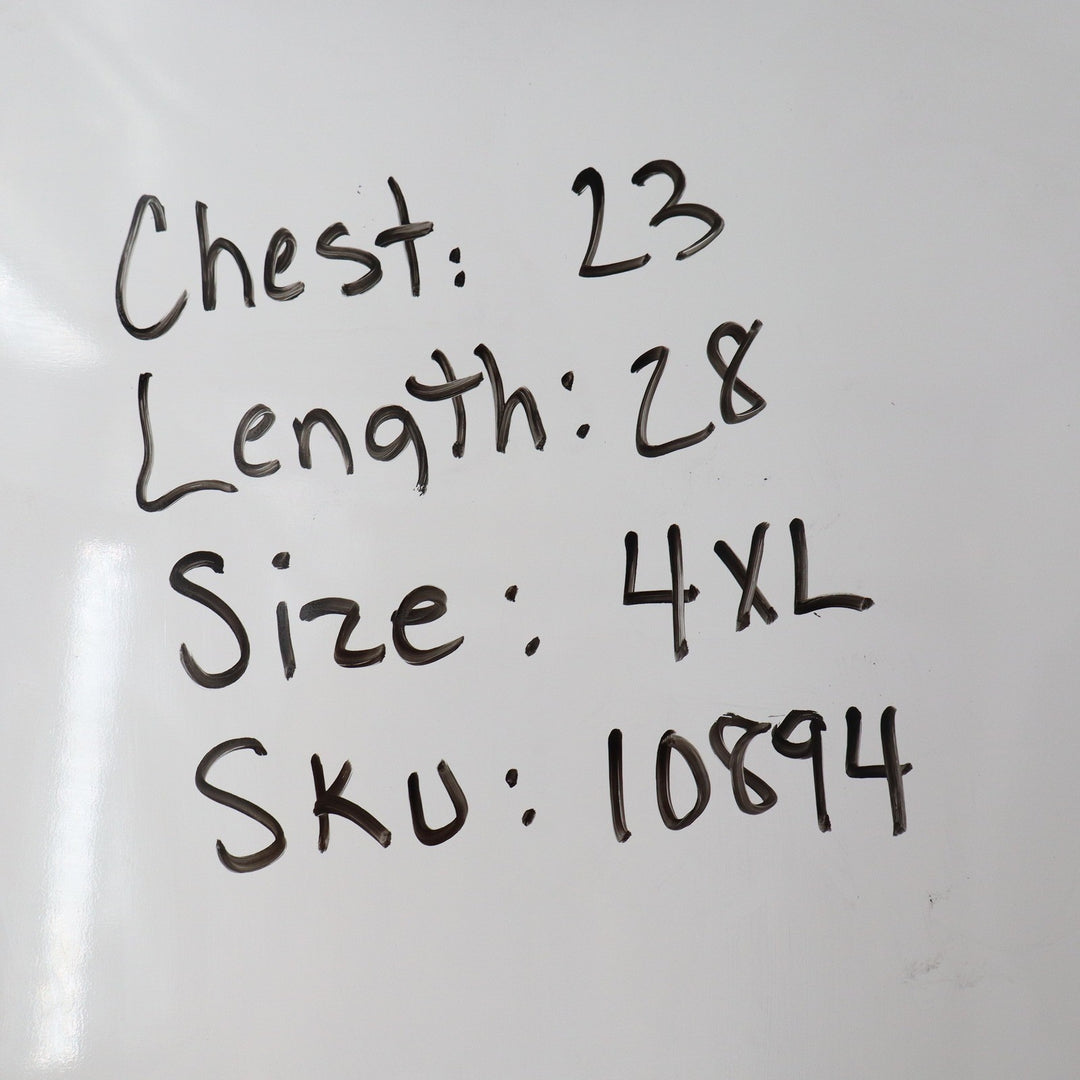 Chest: 23
Length: 28
Size: 4XL
SKU: 10894